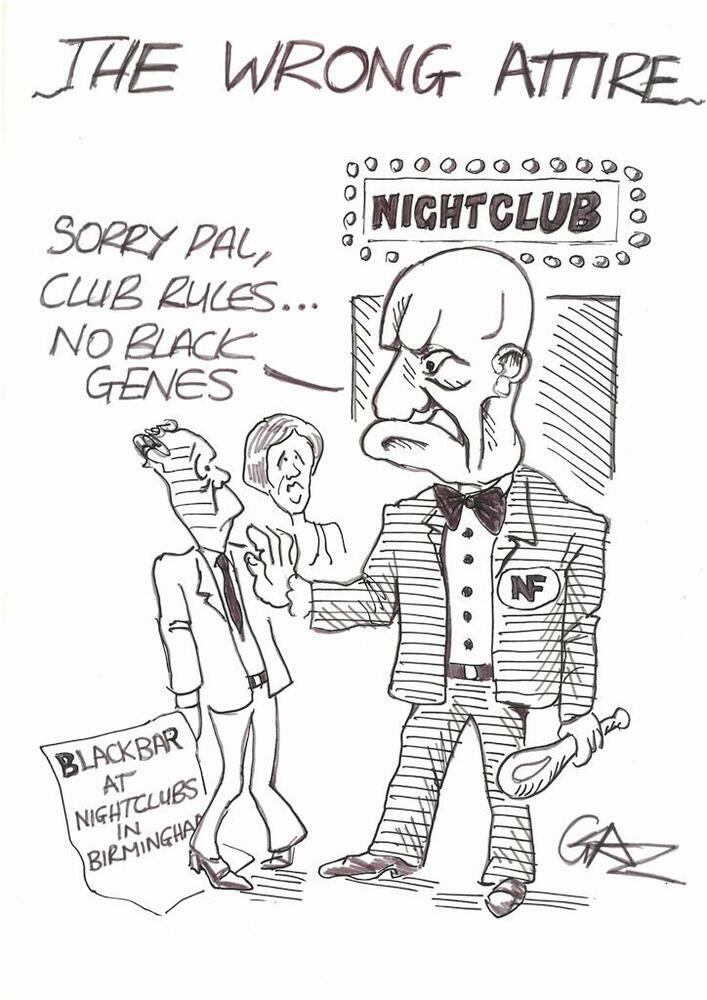 THE WRONG ATTIRE
NIGHTCLUB
SORRY PAL,
CLUB RULES...
NO BLACK
GENES
NF
BLACKBAR
AT
NIGHTCLUBS
IN
BIRMINGHAM
GAZ